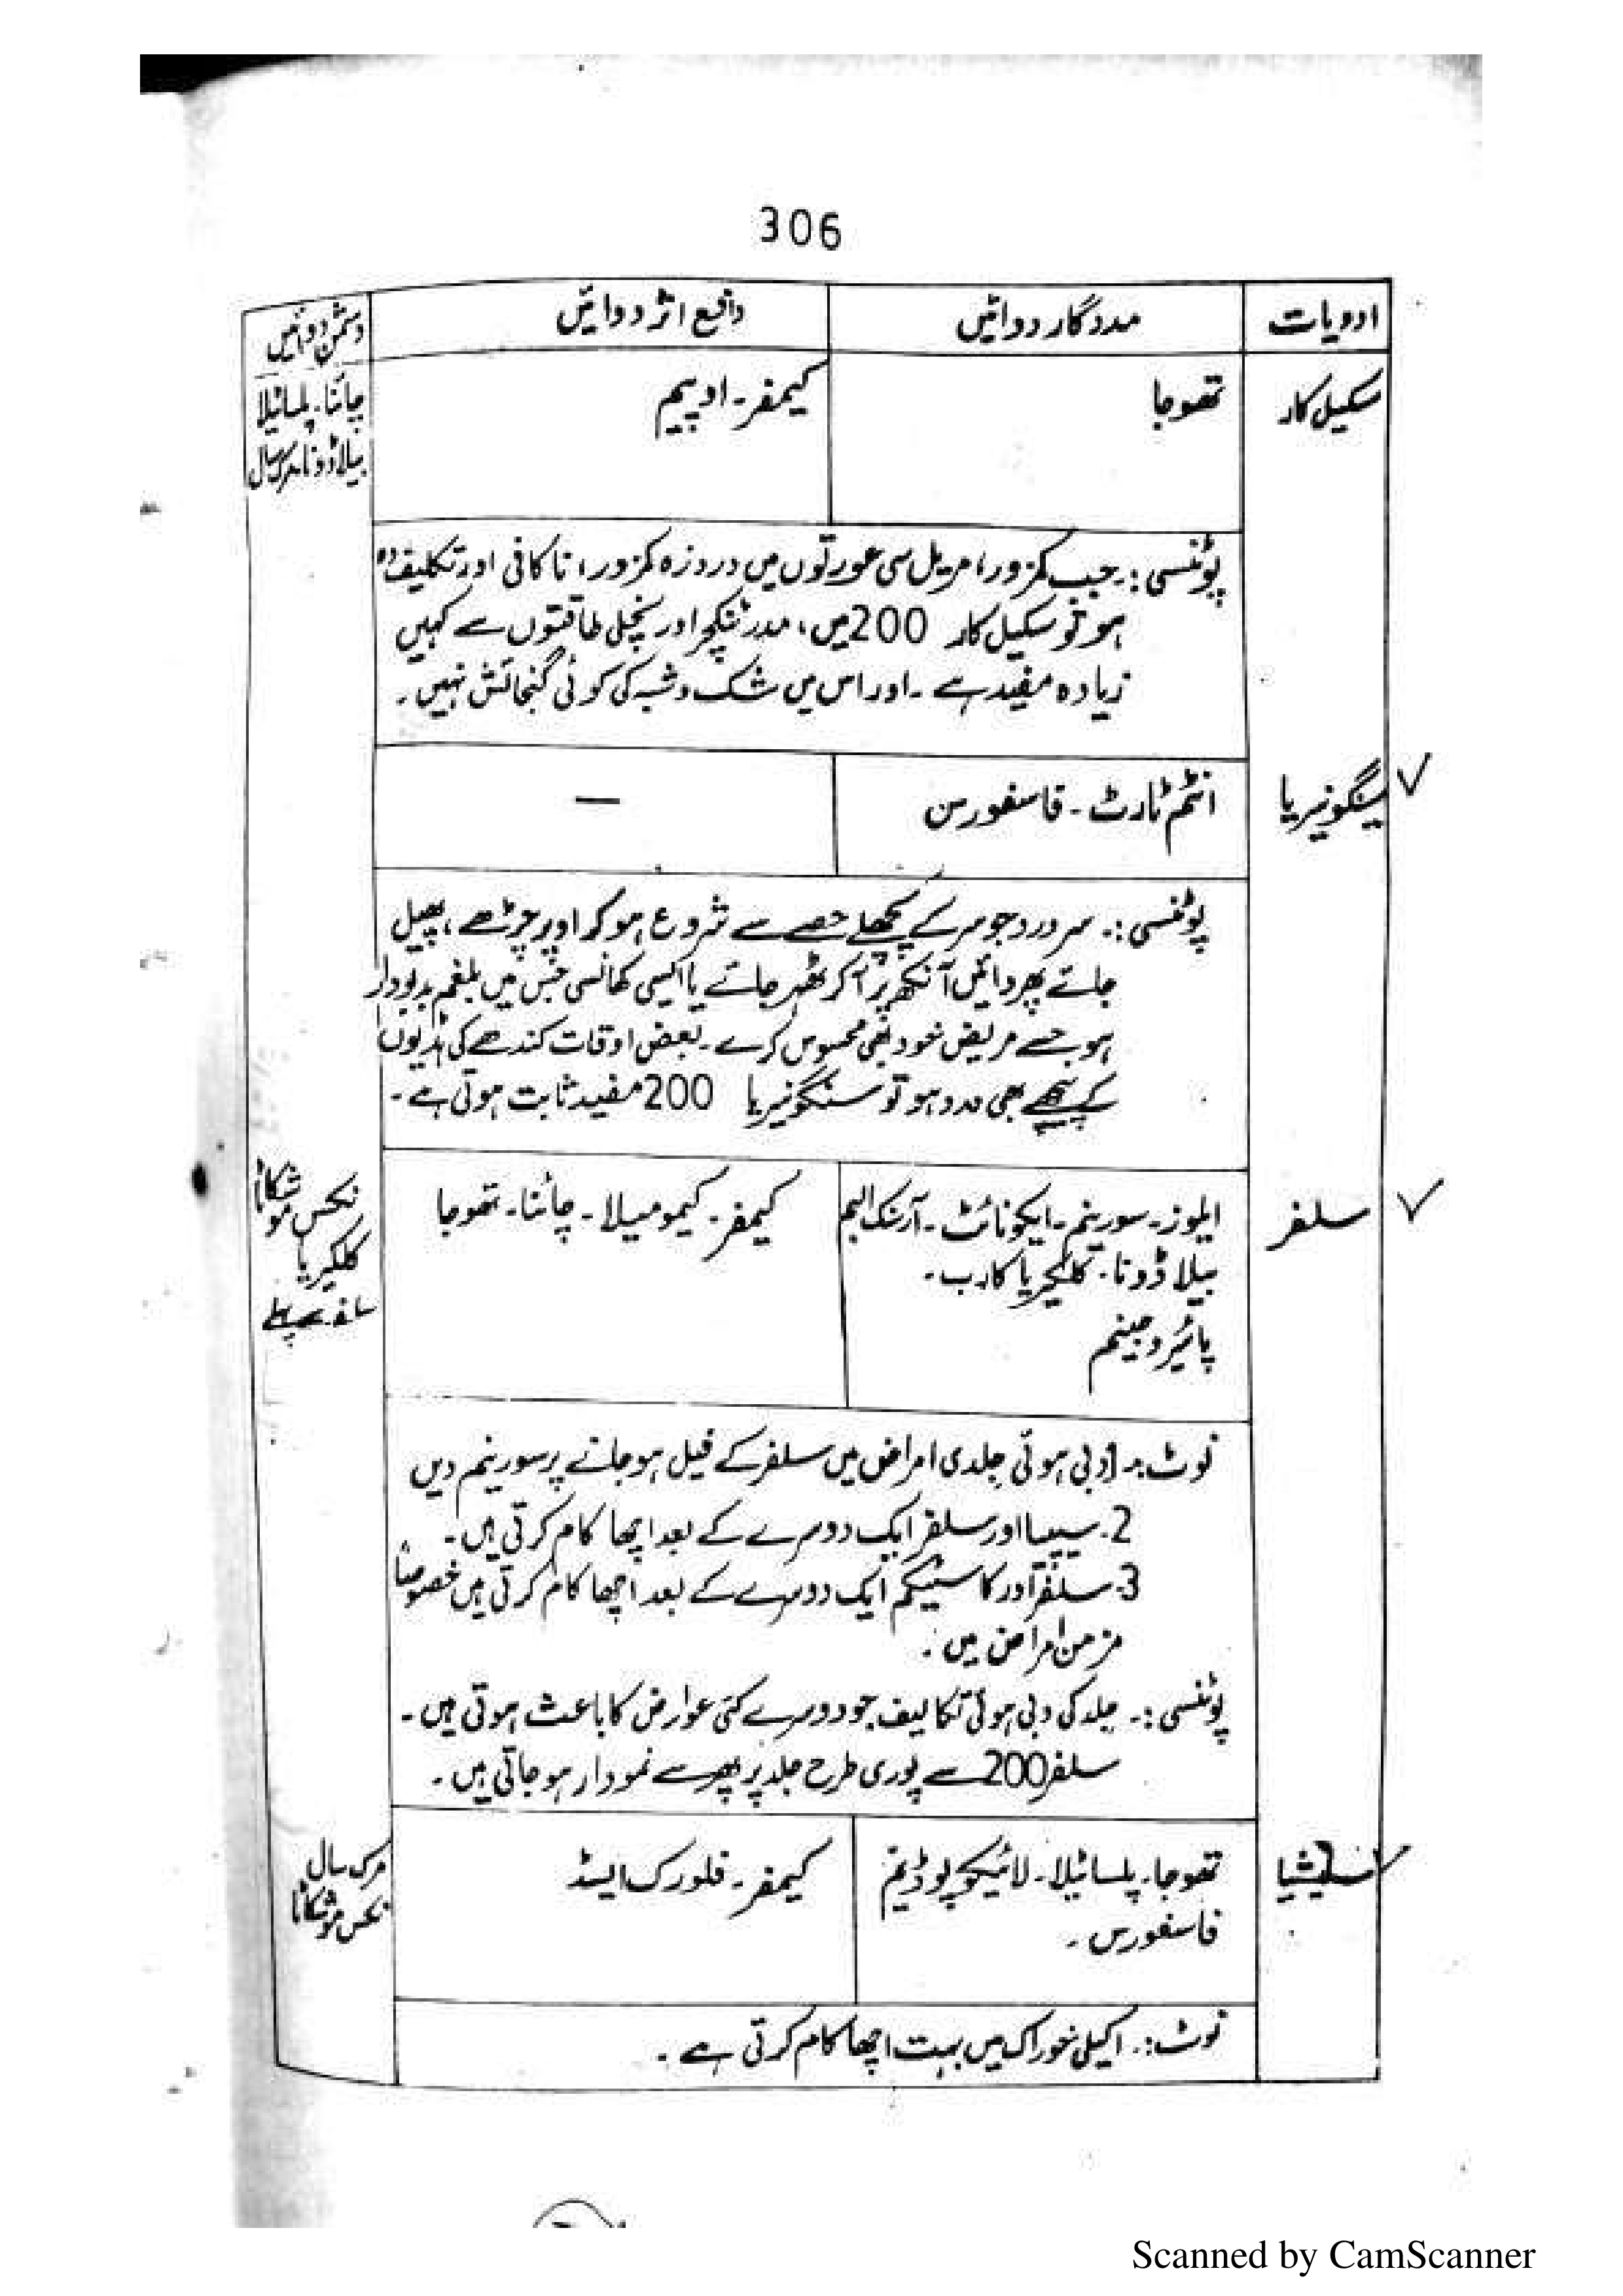 306
ادویات
مددگار دوائیں
دافع اثر دوائیں
دشمن دوائیں
سکیل کار
تھوجا
کیمفر۔ اوپیم
چائنا۔ پلساٹیلا
بیلاڈونا مرکسال
پوٹنسی:۔ جب کمزور، مریل سی عورتوں میں دردزہ کمزور، ناکافی اور تکلیف دہ
ہو تو سکیل کار 200 میں، مدر ٹنکچر اور نچلی طاقتوں سے کہیں
زیادہ مفید ہے۔ اور اس میں شک و شبہ کی کوئی گنجائش نہیں۔
سینگونیریا
انٹم ٹارٹ۔ فاسفورس
—
پوٹنسی:۔ سر درد جو سر کے پچھلے حصے سے شروع ہو کر اوپر چڑھے، پھیل
جائے پھر دائیں آنکھ پر آ کر ٹھہر جائے یا ایسی کھانسی جس میں بلغم بدبودار
ہو جسے مریض خود بھی محسوس کرے۔ بعض اوقات کندھے کی ہڈیوں
کے نیچے بھی درد ہو تو سنگونیریا 200 مفید ثابت ہوتی ہے۔
سلفر
ایلوز۔ سورینم۔ ایکونائٹ۔ آرسنک البم
بیلاڈونا۔ کلکیریا کارب۔
پائیروجینم
کیمفر۔ کیمومیلا۔ چائنا۔ تھوجا
نکس موشکاٹا
کلکیریا
سلفر سے پہلے
نوٹ:۔ 1 دبی ہوئی جلدی امراض میں سلفر کے فیل ہو جانے پر سورینم دیں
2۔ سیپیا اور سلفر ایک دوسرے کے بعد اچھا کام کرتی ہیں۔
3۔ سلفر اور کاسٹیکم ایک دوسرے کے بعد اچھا کام کرتی ہیں خصوصاً
مزمن امراض میں۔
پوٹنسی:۔ جلد کی دبی ہوئی تکالیف جو دوسرے کئی عوارض کا باعث ہوتی ہیں۔
سلفر 200 سے پوری طرح جلد پر پھر سے نمودار ہو جاتی ہیں۔
سلیشیا
تھوجا۔ پلساٹیلا۔ لائیکوپوڈیم
فاسفورس۔
کیمفر۔ فلورک ایسڈ
مرکسال
نکس موشکاٹا
نوٹ:۔ اکیلی خوراک میں بہت اچھا کام کرتی ہے۔
Scanned by CamScanner